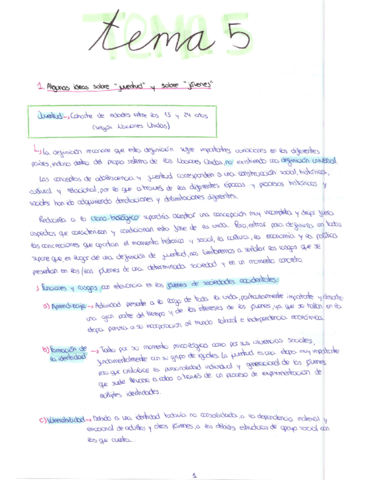 tema 5
1. Algunas ideas sobre "juventud" y sobre "jóvenes"
Juventud → Cohorte de edades entre los 15 y 24 años
(según Naciones Unidas)
↳ la organización reconoce que esta definición sufre importantes variaciones en los diferentes
países, incluso dentro del propio sistema de las Naciones Unidas no existiendo una definición universal.
Los conceptos de adolescencia y juventud corresponden a una construcción social, histórica,
cultural y relacional, por lo que a través de las diferentes épocas y procesos históricos y
sociales han ido adquiriendo denotaciones y delimitaciones diferentes.
Reducirla a lo biológico supondría aceptar una concepción muy incompleta y deja fuera
aspectos que caracterizan y condicionan esta fase de la vida. Pero, entrar para definirla, en todas
las concreciones que aportan el momento histórico y social, la cultura, la economía y la política
supone que en lugar de una definición de juventud, nos limitaremos a señalar los rasgos que se
presentan en los/las jóvenes de una determinada sociedad y en un momento concreto.
Funciones y rasgos con relevancia en los jóvenes de sociedades occidentales:
a) Aprendizaje → Actividad presente a lo largo de toda la vida, particularmente importante y durante
una gran parte del tiempo y de los intereses de los jóvenes, ya que se hallan en la
etapa previa a su incorporación al mundo laboral e independencia económica.
b) Formación de → Tanto por su momento psicológico como por sus vivencias sociales,
la identidad
fundamentalmente con su grupo de iguales la juventud es una etapa muy importante
para que cristalice la personalidad individual y generacional de los jóvenes
que suele llevarse a cabo a través de un proceso de experimentación de
múltiples identidades.
c) Vulnerabilidad → Debido a una identidad todavía no consolidada, a la dependencia material y
emocional de adultos y otros jóvenes, a las débiles estructuras de apoyo social con
las que cuenta.
1